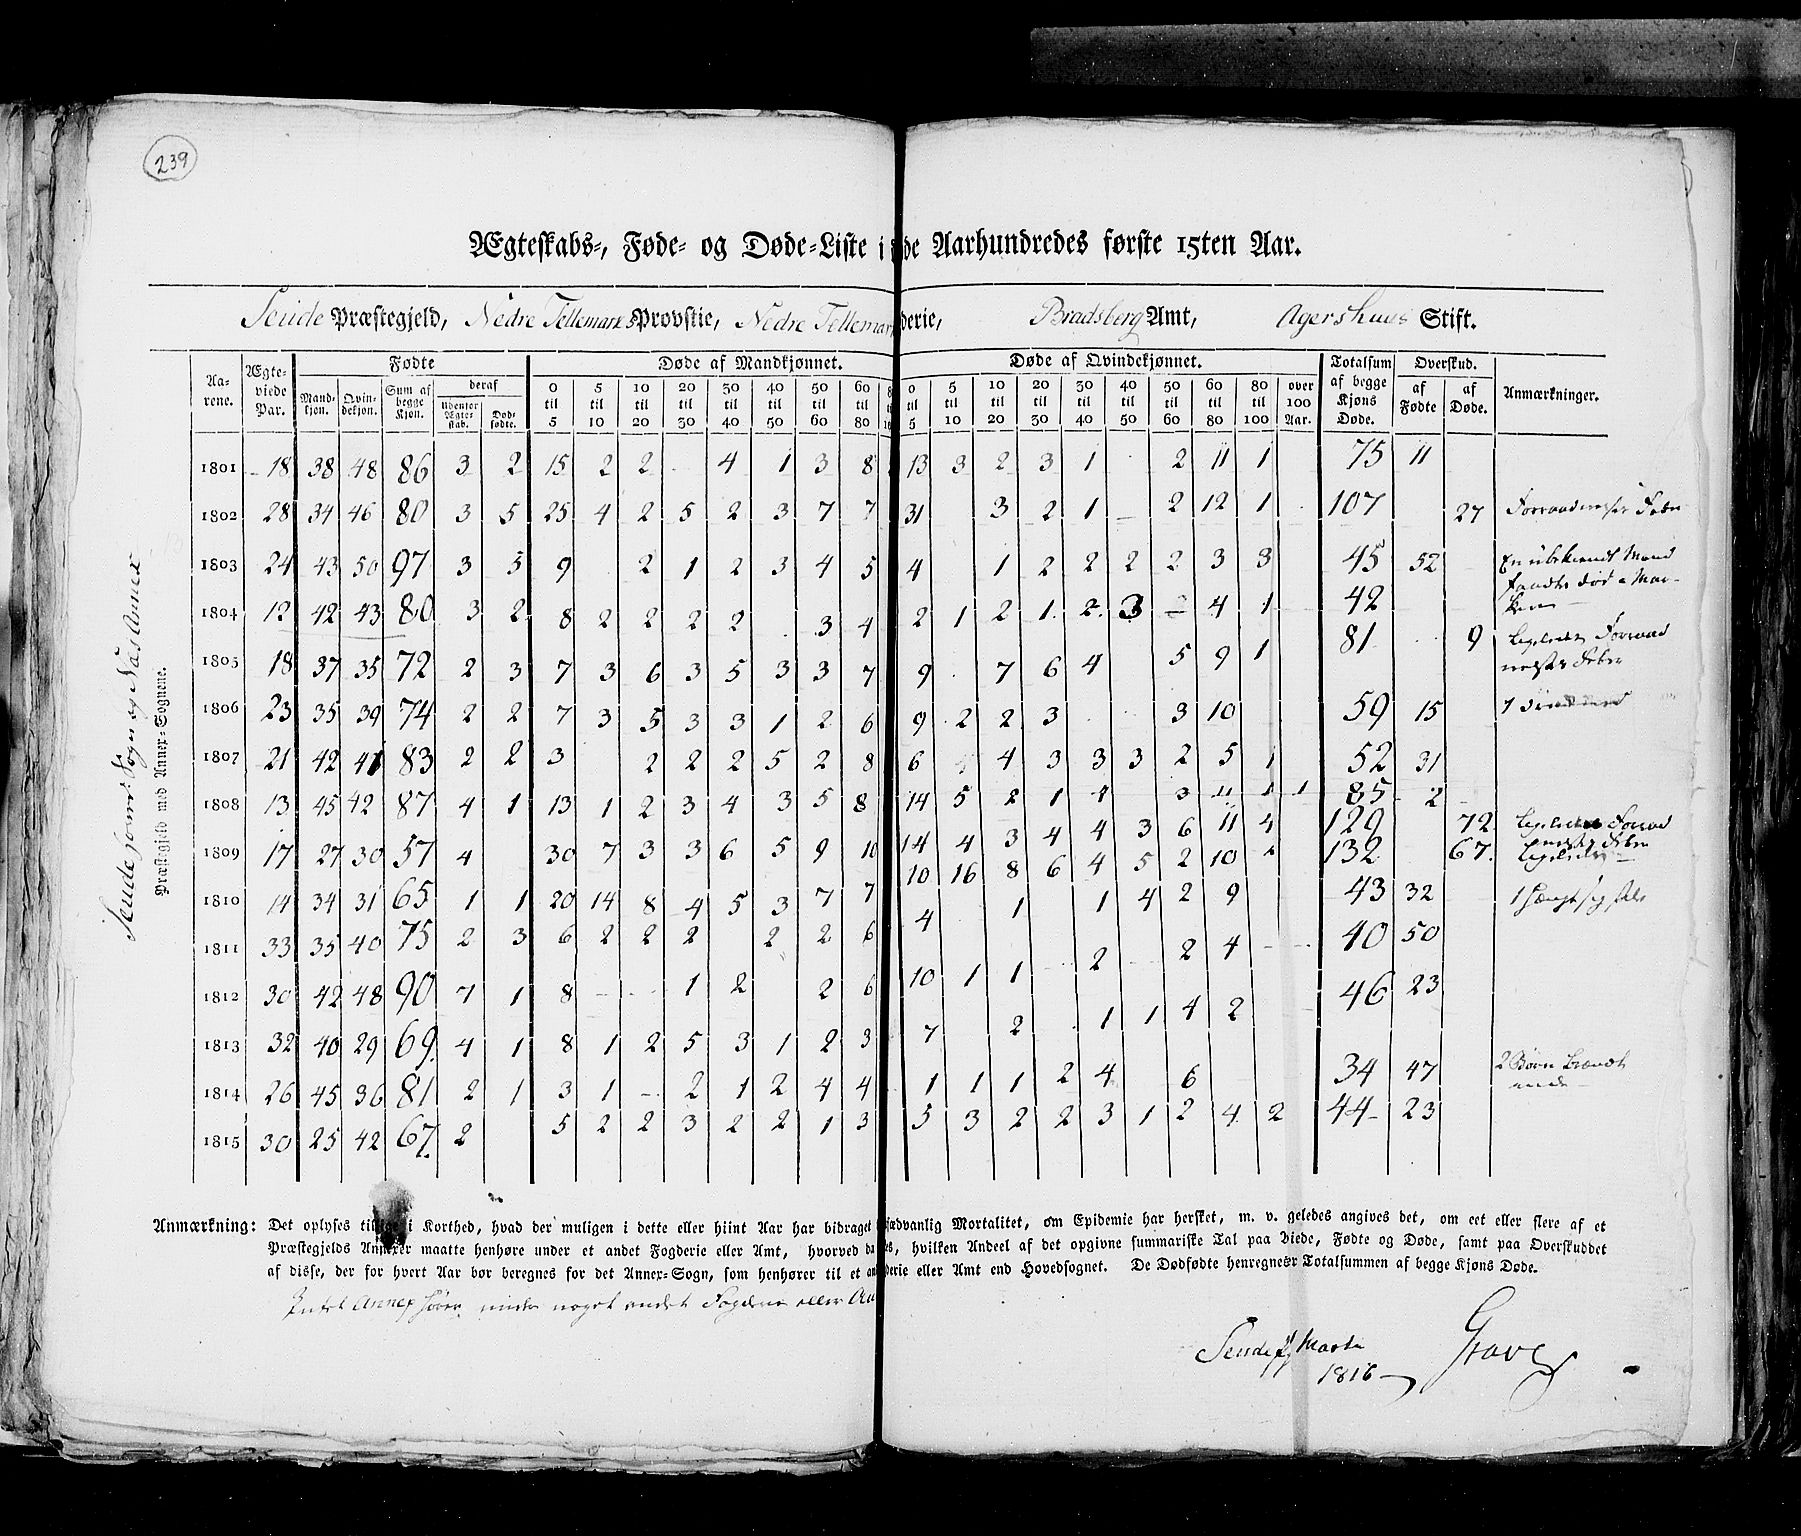 239
Ægteskabs-, Føde- og Døde-Liste i de Aarhundredes første 15ten Aar.
Seude Præstegjeld, Nedre Tellemarkes Provstie, Nedre Tellemar derie, Bradsberg Amt, Agershuus Stift.
Seude Præstegjeld med Annex-Sognene.
Aarene. Ægteviede Par. Fødte Døde af Mandkjønnet. Døde af Qvindekjønnet. Totalsum af begge Kjøns Døde. Overskud. Anmærkninger.
Mandkjøn. Qvindekjøn. Sum af begge Kjøn. deraf Udenfor Ægteskab. Dødfødte. 0 til 5 5 til 10 10 til 20 20 til 30 30 til 40 40 til 50 50 til 60 60 til 80 0 til 5 5 til 10 10 til 20 20 til 30 30 til 40 40 til 50 50 til 60 60 til 80 80 til 100 over 100 Aar. af Fødte af Døde.
1801 18 38 48 86 3 2 15 2 2 4 1 3 8 13 3 2 3 1 2 11 1 75 11
1802 28 34 46 80 3 5 25 4 2 5 2 3 7 7 31 3 2 1 2 12 1 107 27 Forraadnelses Feber
1803 24 43 50 97 3 5 9 2 1 2 3 4 5 4 1 2 2 2 2 3 3 45 52 En ubekiendt Mand
1804 12 42 43 80 3 2 8 2 2 2 2 3 4 2 1 2 1 2 3 4 1 42
1805 18 37 35 72 2 3 7 3 6 3 5 3 3 7 9 7 6 4 5 9 1 81 9 Feber
1806 23 35 39 74 2 2 7 3 5 3 3 1 2 6 9 2 2 3 3 10 59 15
1807 21 42 41 83 2 2 3 2 2 2 5 2 8 6 4 3 3 3 2 5 1 52 31
1808 13 45 42 87 4 1 13 1 2 3 4 3 5 8 14 5 2 1 1 3 11 1 1 85 2
1809 17 27 30 57 4 30 7 3 3 6 5 9 10 14 4 3 4 4 3 6 11 4 129 72
1810 14 34 31 65 1 1 20 14 8 4 5 3 7 7 10 16 8 6 4 5 2 10 132 67
1811 33 35 40 75 2 3 6 2 2 2 2 2 6 4 1 1 4 2 9 43 32
1812 30 42 48 90 7 1 8 1 2 2 6 10 1 1 2 2 4 40 50
1813 32 40 29 69 4 1 8 1 2 5 3 1 2 3 7 2 1 1 4 2 46 23
1814 26 45 36 81 2 1 3 1 2 1 2 4 4 1 1 1 2 4 6 34 47 2 Børn
1815 30 25 42 67 2 5 2 2 3 2 2 1 3 5 3 2 2 3 1 2 4 2 44 23
Anmærkning: Det oplyses tillige i Korthed, hvad der muligen i dette eller hiint Aar har bidraget sædvanlig Mortalitet, om Epidemie har hersket, m. v. geledes angives det, om eet eller flere af et
Præstegjelds Annexer maatte henhøre under et andet Fogderie eller Amt, hvorved es, hvilken Andeel af det opgivne summariske Tal paa Viede, Fødte og Døde, samt paa Overskuddet
af disse, der for hvert Aar bør beregnes for det Annex-Sogn, som henhører til et an derie eller Amt end Hovedsognet. De Dødfødte henregnes Totalsummen af begge Kjøns Døde.
Intet Annex hører under noget andet Fogderie eller
Seude Marti
1816